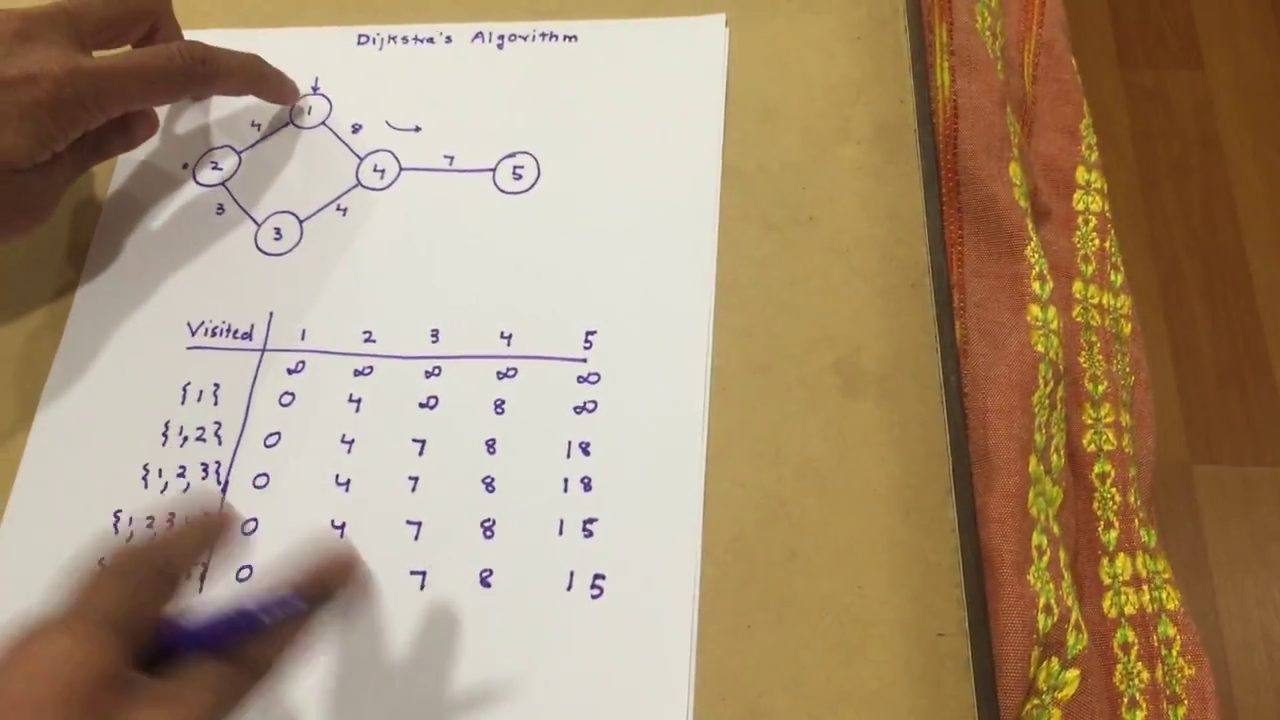 Dijkstra's Algorithm
1
4 8
2 4 7 5
3 4
3
Visited 1 2 3 4 5
∞ ∞ ∞ ∞ ∞
{1} 0 4 ∞ 8 ∞
{1,2} 0 4 7 8 18
{1,2,3} 0 4 7 8 18
{1,2,3 0 4 7 8 15
0 7 8 15